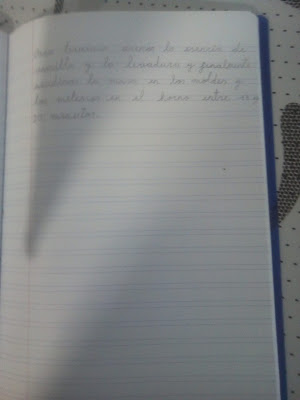 Para terminar echamos la esencia de
vainilla y la levadura y finalmente
vertimos la masa en los moldes y
los metemos en el horno entre 15 y
20 minutos.